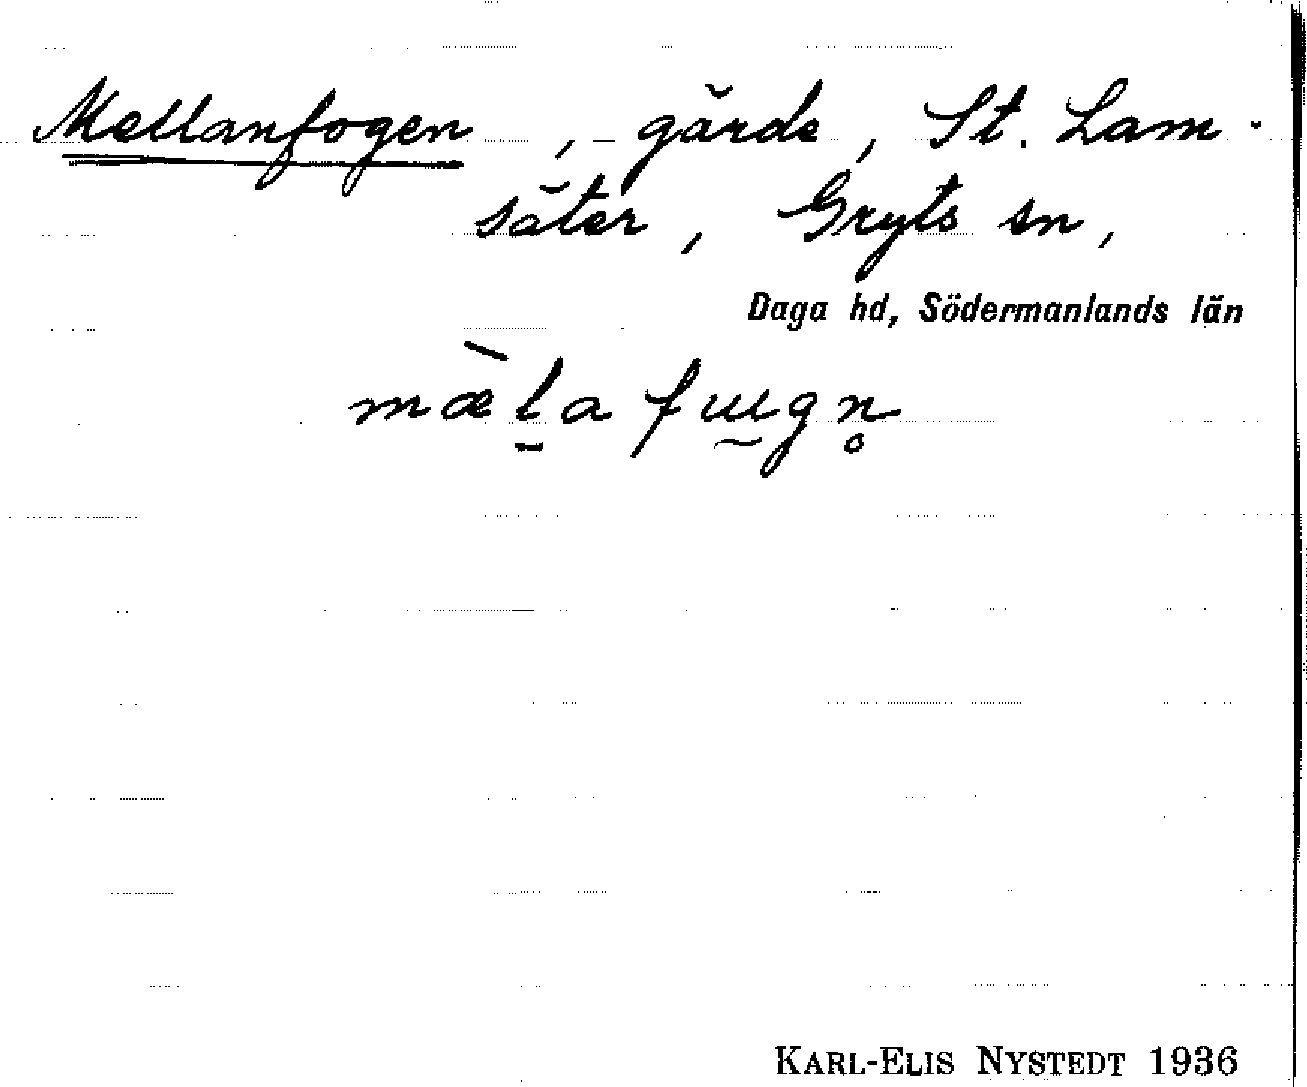 Mellanfogen, gärde, St. Lam-
säter, Gryts sn,
Daga hd, Södermanlands län
mæ̀l̠a fɯ̰gn̥
KARL-ELIS NYSTEDT 1936